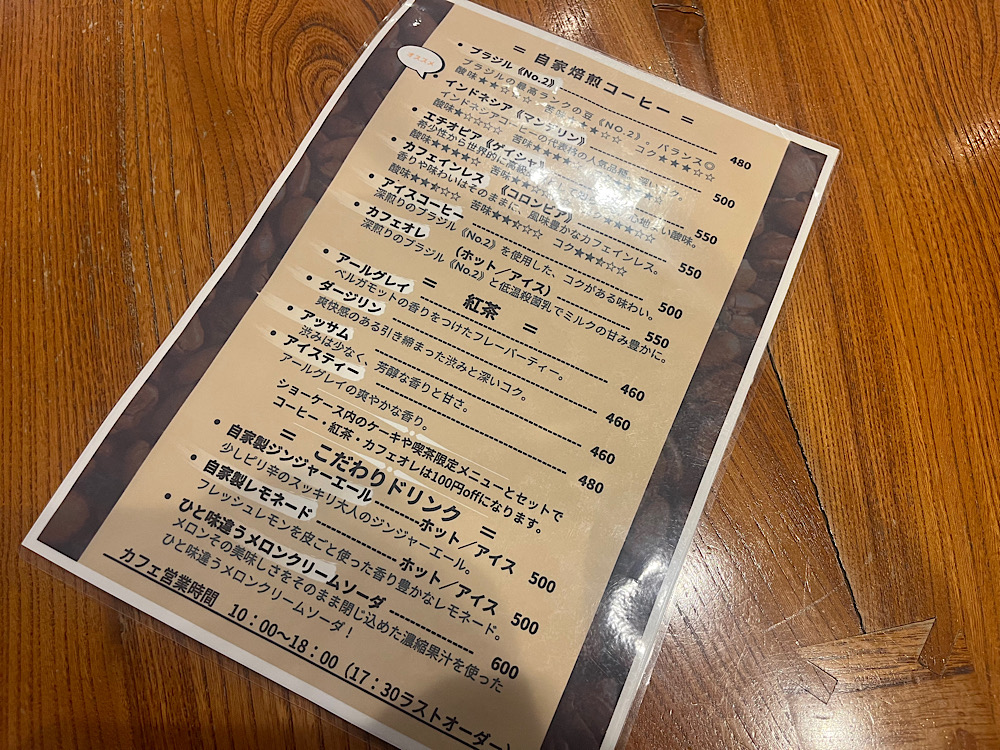 = 自家焙煎コーヒー =
オススメ
• ブラジル《No.2》 480
ブラジルの最高ランクの豆《NO.2》。バランス◎
酸味★★ コク★★★☆☆
• インドネシア《マンデリン》 500
インドネシアコーヒーの代表格の人気品種。
酸味★☆☆☆☆ 苦味★★★★
• エチオピア《ゲイシャ》 550
希少性から世界的に高級 酸味。
酸味★★★★ 苦味★★
• カフェインレス《コロンビア》 550
香りや味わいはそのままに、風味豊かなカフェインレス。
酸味★★★☆☆ 苦味★★☆☆☆ コク★★★☆☆
• アイスコーヒー 500
深煎りのブラジル《No.2》を使用した、コクがある味わい。
• カフェオレ (ホット／アイス) 550
深煎りのブラジル《No.2》と低温殺菌乳でミルクの甘み豊かに。
= 紅茶 =
• アールグレイ 460
ベルガモットの香りをつけたフレーバーティー。
• ダージリン 460
爽快感のある引き締まった渋みと深いコク。
• アッサム 460
渋みは少なく、芳醇な香りと甘さ。
• アイスティー 480
アールグレイの爽やかな香り。
ショーケース内のケーキや喫茶限定メニューとセットで
コーヒー・紅茶・カフェオレは100円offになります。
= こだわりドリンク =
• 自家製ジンジャーエール ホット／アイス 500
少しピリ辛のスッキリ大人のジンジャーエール。
• 自家製レモネード ホット／アイス 500
フレッシュレモンを皮ごと使った香り豊かなレモネード。
• ひと味違うメロンクリームソーダ 600
メロンその美味しさをそのまま閉じ込めた濃縮果汁を使った
ひと味違うメロンクリームソーダ！
カフェ営業時間 10：00～18：00 (17：30ラストオーダー)